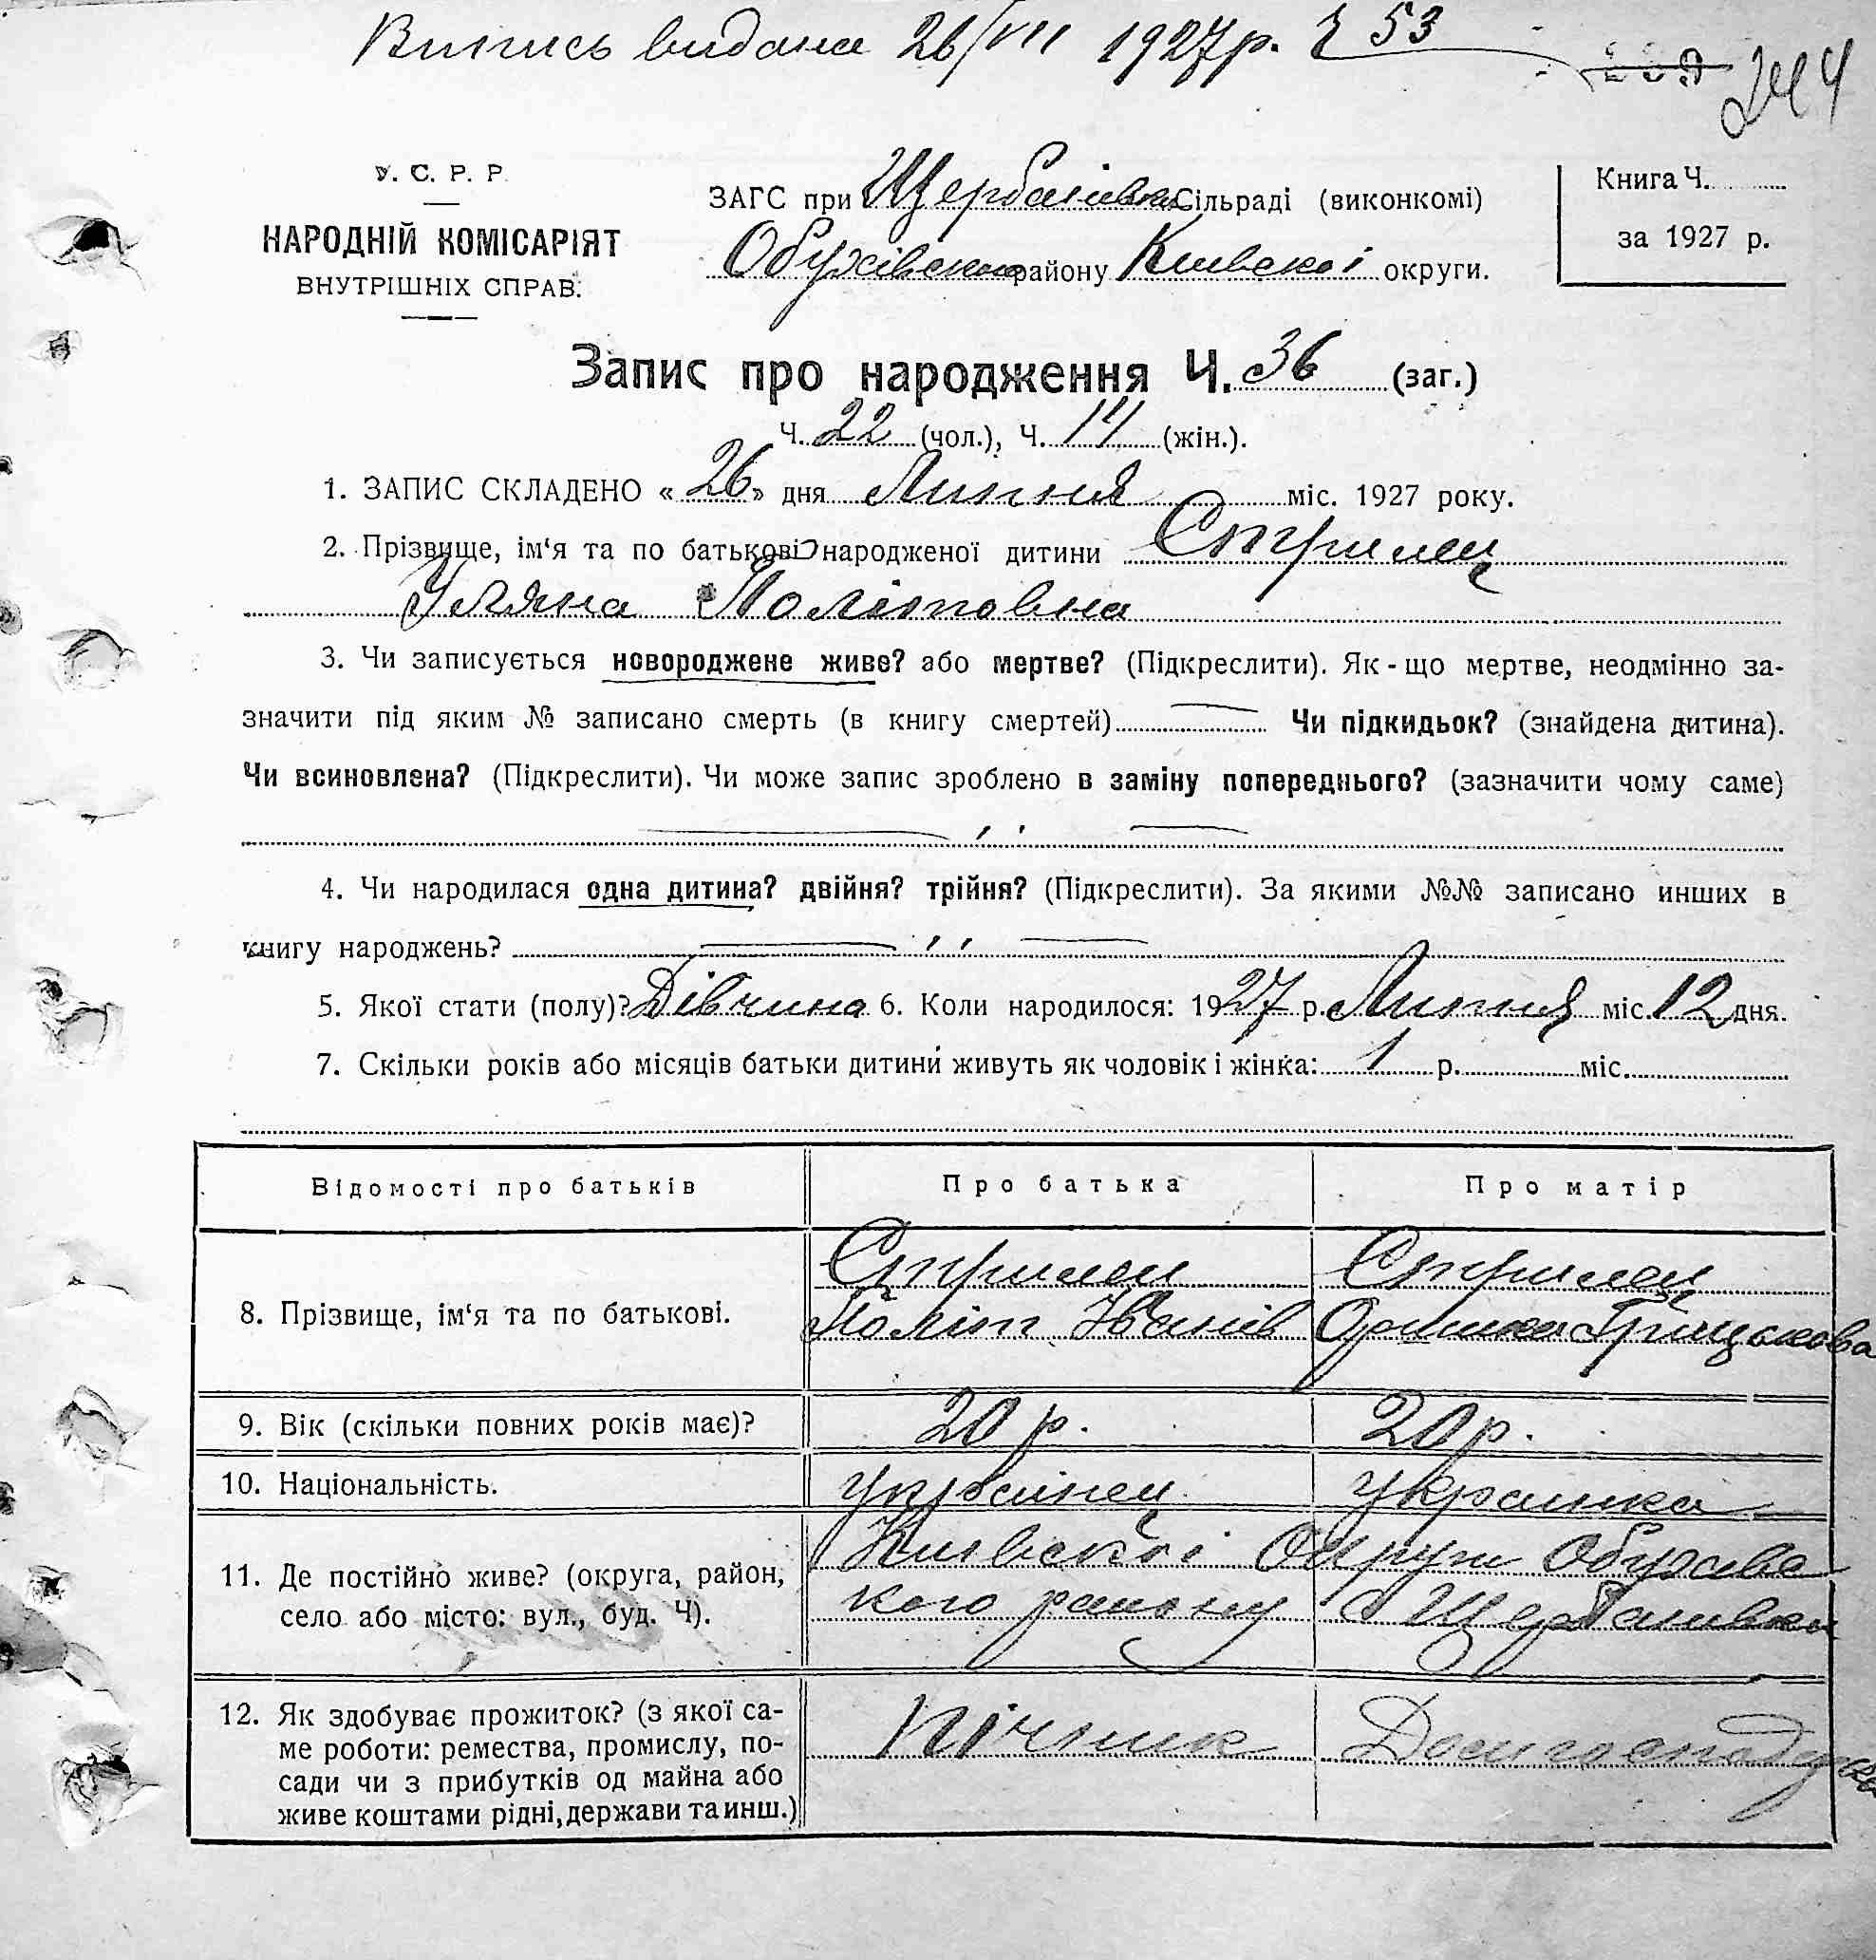 Випись видана 26/VII 1927 р. Ч 53
239 244
У. С. Р. Р.
НАРОДНІЙ КОМІСАРІЯТ
ВНУТРІШНІХ СПРАВ.
ЗАГС при Щербанівск Сільраді (виконкомі)
Обухівского району Київскої округи.
Книга Ч.
за 1927 р.
Запис про народження Ч. 36 (заг.)
Ч. 22 (чол.), Ч. 14 (жін.).
1. ЗАПИС СКЛАДЕНО « 26 » дня Липня міс. 1927 року.
2. Прізвище, ім‘я та по батькові народженої дитини Стрилец
Уляна Поліповна
3. Чи записується новороджене живе? або мертве? (Підкреслити). Як-що мертве, неодмінно за-
значити під яким № записано смерть (в книгу смертей) Чи підкидьок? (знайдена дитина).
Чи всиновлена? (Підкреслити). Чи може запис зроблено в заміну попереднього? (зазначити чому саме)
4. Чи народилася одна дитина? двійня? трійня? (Підкреслити). За якими №№ записано инших в
книгу народжень?
5. Якої стати (полу)? Дівчина 6. Коли народилося: 1927 р. Липня міс. 12 дня.
7. Скільки років або місяців батьки дитини живуть як чоловік і жінка: 1 р. міс.
Відомості про батьків Про батька Про матір
8. Прізвище, ім‘я та по батькові.
Стрилец
Поліп Іванів
Стрилец
Оришка Грицькова
9. Вік (скільки повних років має)? 20 р. 20 р.
10. Національність. українец українка
11. Де постійно живе? (округа, район,
село або місто: вул., буд. Ч).
Київскої Округи Обухівс
кого району с Щербанівки
12. Як здобуває прожиток? (з якої са-
ме роботи: ремества, промислу, по-
сади чи з прибутків од майна або
живе коштами рідні, держави та инш.)
пічник